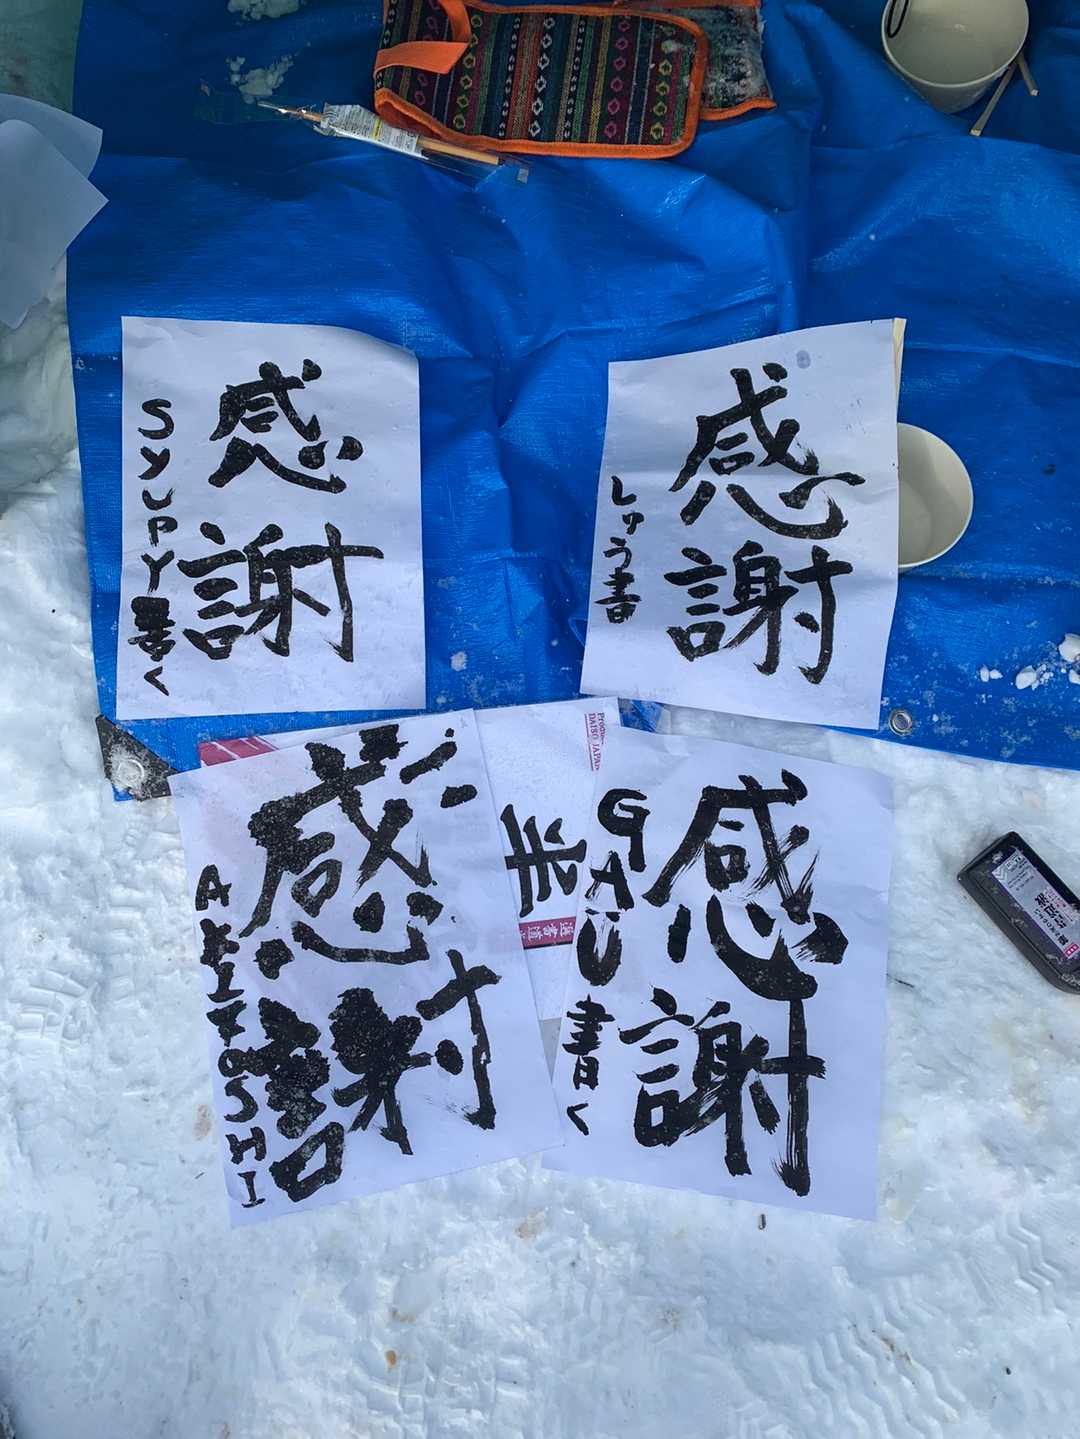 感謝
SYUPY書く
感謝
しゅう書
感謝
AKITOSHI
半
DAISO JAPAN
感謝
GAU書く